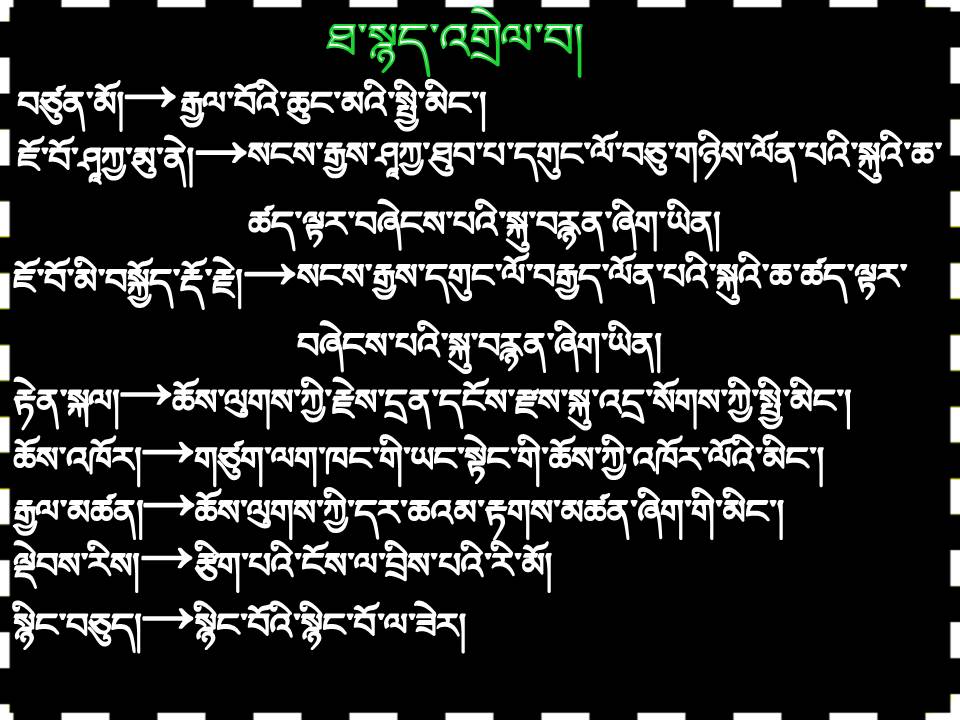 ཐ་སྙད་འགྲེལ་བ།
བཙུན་མོ།→རྒྱལ་བོའི་ཆུང་མའི་སྤྱི་མིང་།
ཇོ་བོ་ཤཱཀྱ་མུ་ནེ།→སངས་རྒྱས་ཤཱཀྱ་ཐུབ་པ་དགུང་ལོ་བཅུ་གཉིས་ལོན་པའི་སྐུའི་ཆ་
ཚད་ལྟར་བཞེངས་པའི་སྐུ་བརྙན་ཞིག་ཡིན།
ཇོ་བོ་མི་བསྐྱོད་རྡོ་རྗེ།→སངས་རྒྱས་དགུང་ལོ་བརྒྱད་ལོན་པའི་སྐུའི་ཆ་ཚད་ལྟར་
བཞེངས་པའི་སྐུ་བརྙན་ཞིག་ཡིན།
རྟེན་སྐལ།→ཆོས་ལུགས་ཀྱི་རྗེས་དྲན་དངོས་རྫས་སྐུ་འདྲ་སོགས་ཀྱི་སྤྱི་མིང་།
ཆོས་འཁོར།→གཙུག་ལག་ཁང་གི་ཡང་སྟེང་གི་ཆོས་ཀྱི་འཁོར་ལོའི་མིང་།
རྒྱལ་མཚན།→ཆོས་ལུགས་ཀྱི་དར་ཆའམ་རྟགས་མཚན་ཞིག་གི་མིང་།
ལྡེབས་རིས།→རྩིག་པའི་ངོས་ལ་བྲིས་པའི་རི་མོ།
སྙིང་བཅུད།→སྙིང་བོའི་སྙིང་བོ་ལ་ཟེར།